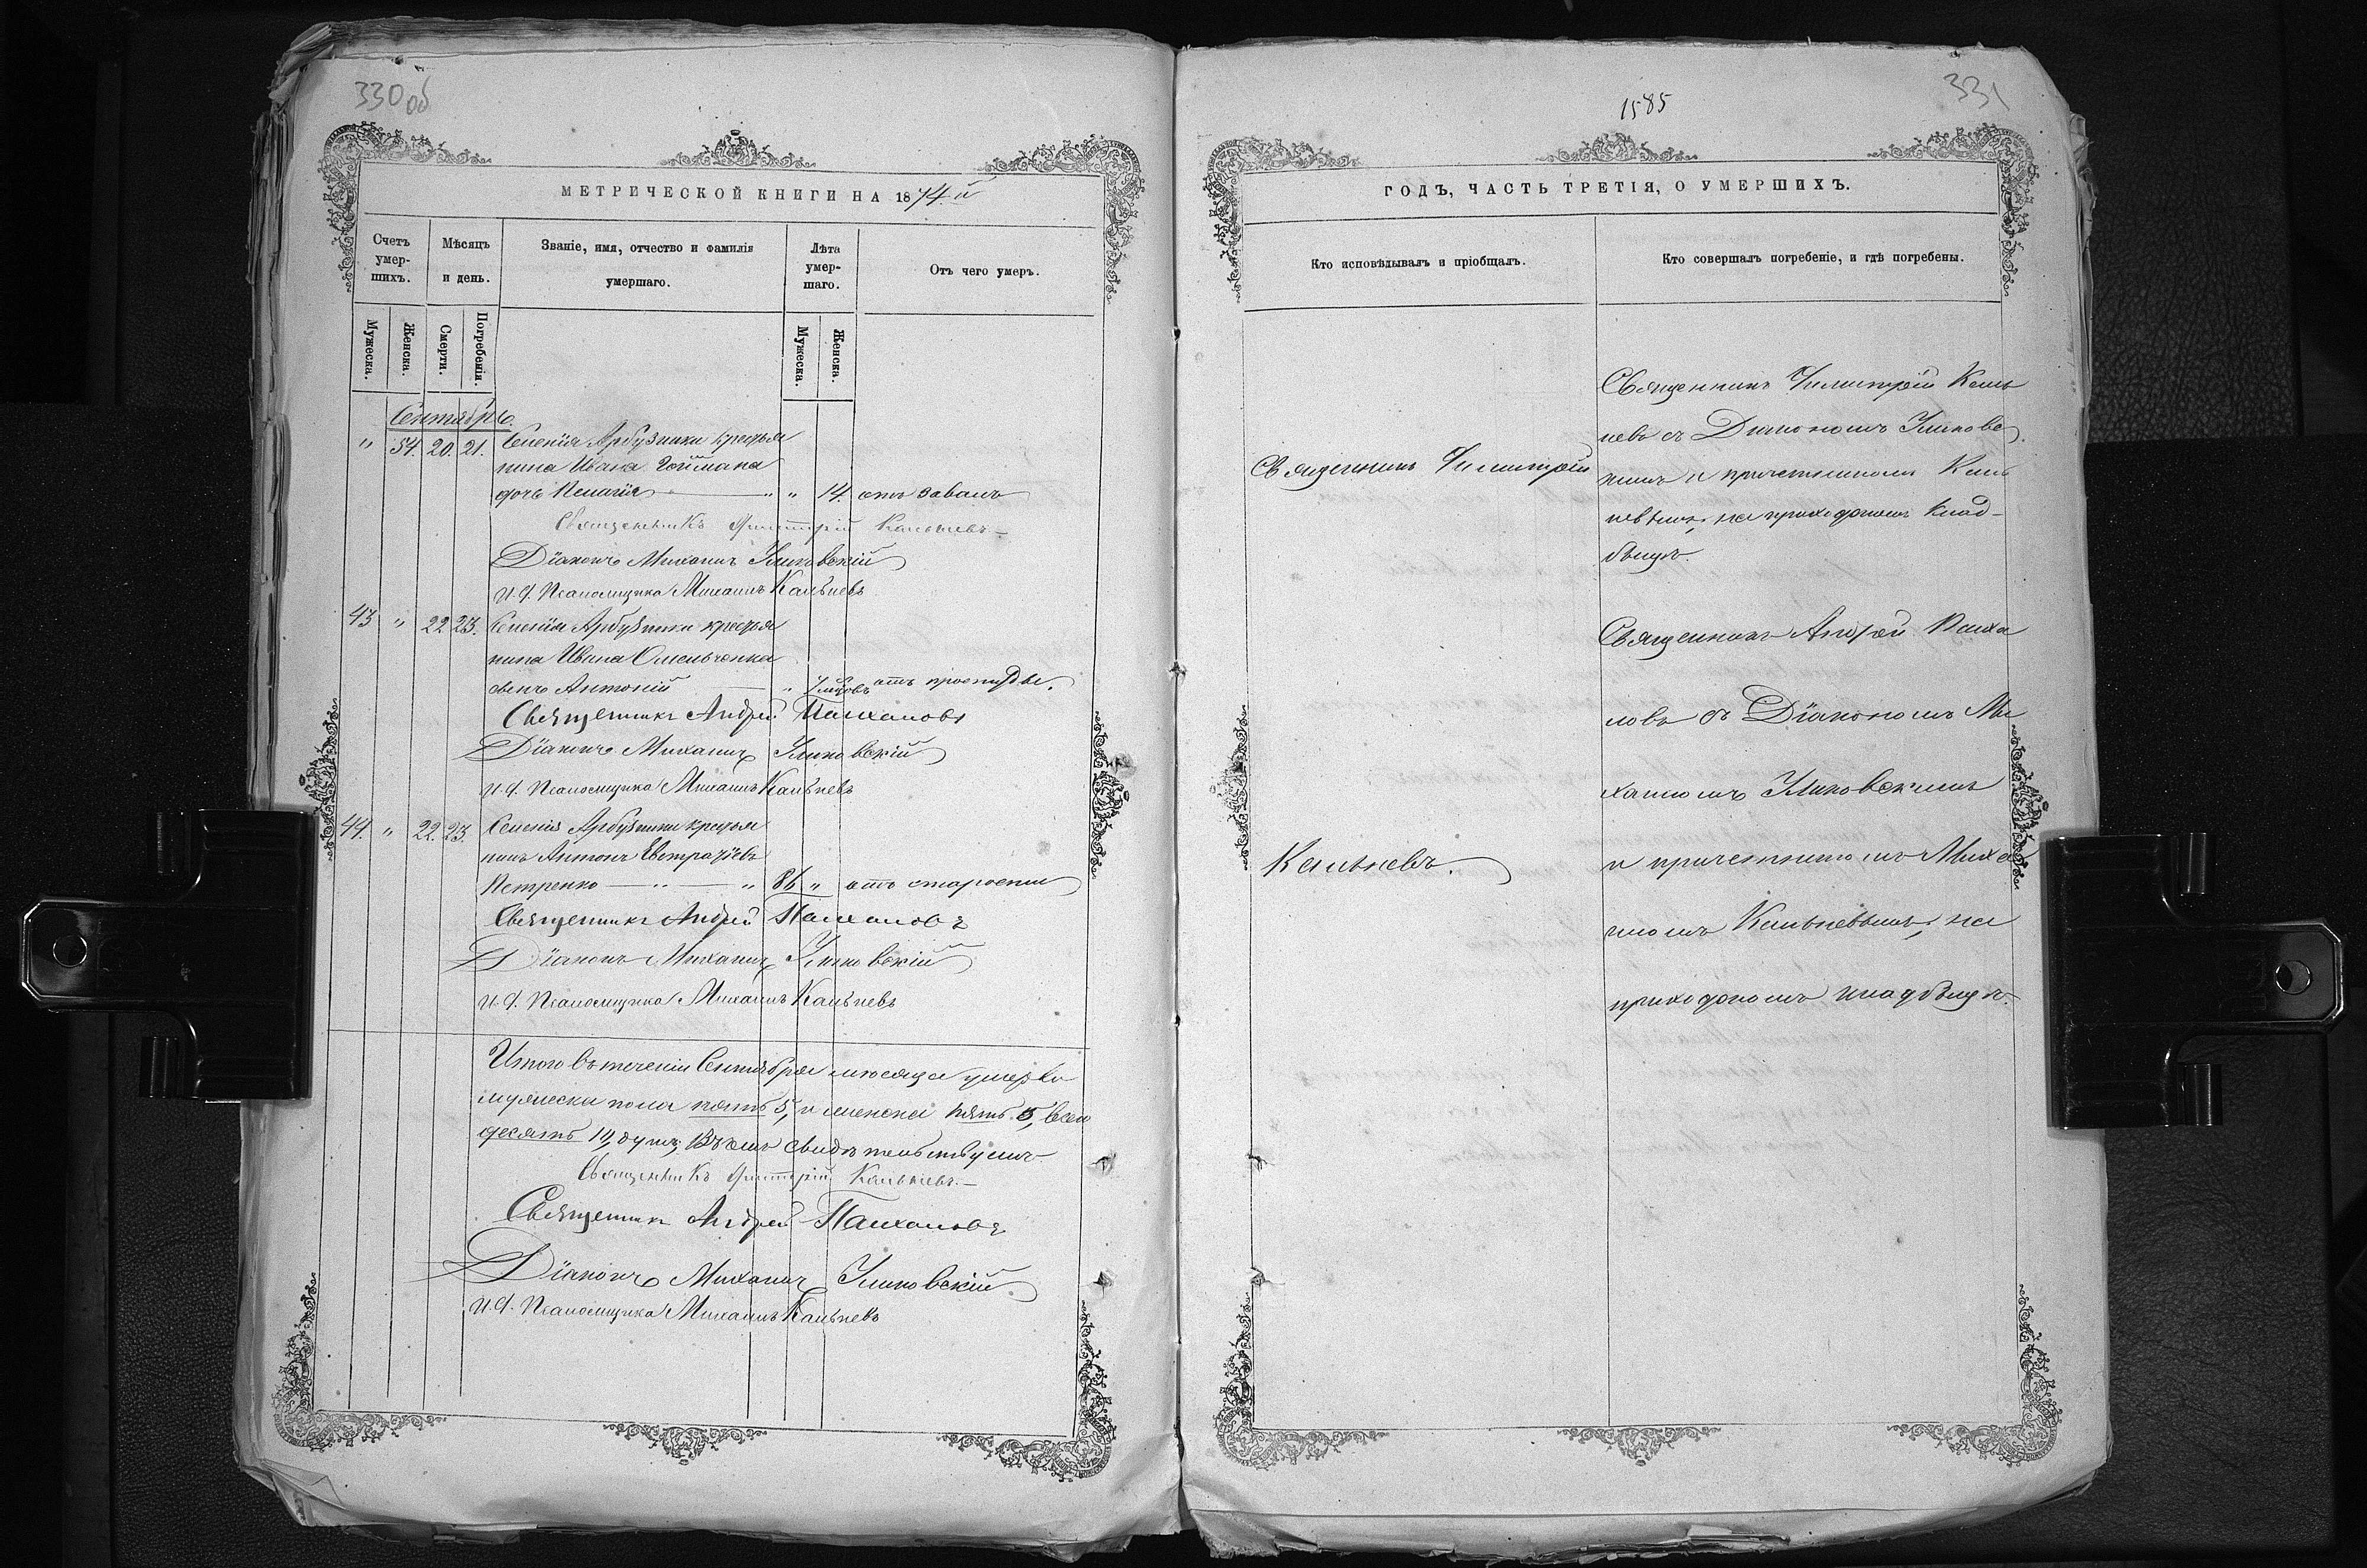 330 об
МЕТРИЧЕСКОЙ КНИГИ НА 1874.й
Счетъ умер-шихъ.
Мѣсяцъ и день.
Званіе, имя, отчество и фамилія умершаго.
Лѣта умер-шаго.
Отъ чего умеръ.
Мужеска.
Женска.
Смерти.
Погребенія.
Мужеска.
Женска.
Сентябрь.
" 54. 20. 21. Селенія Арбузинки крестья
нина Ивана Гоймана
дочь Пелагія " " 14. отъ
Священникъ Димитрій Кальневъ
Діаконъ Михаилъ Улиновскій
И. д. Псаломщика Михаилъ Кальневъ
43 " 22 23. Селенія Арбузинки крестья
нина Ивана Омельченка
сынъ Антоній " 7 мѣсов отъ простуды.
Священникъ Андрей Палхаловъ
Діаконъ Михаилъ Улиновскій
И. д. Псаломщика Михаилъ Кальневъ
44. " 22. 23. Селенія Арбузинки крестья
нинъ Антонъ Евстратіевъ
Петренко " " 86 " отъ старости
Священникъ Андрей Палхаловъ
Діаконъ Михаилъ Улиновскій
И. д. Псаломщика Михаилъ Кальневъ
Итого въ теченіи Сентября мѣсяца умерло
мужеска пола пять 5, и женска пять 5, всего
десять 10, душъ, въ чемъ свидѣтельствуемъ
Священникъ Димитрій Кальневъ
Священникъ Андрей Палхаловъ
Діаконъ Михаилъ Улиновскій
И. д. Псаломщика Михаилъ Кальневъ
1585
331
ГОДЪ, ЧАСТЬ ТРЕТІЯ, О УМЕРШИХЪ.
Кто исповѣдывалъ и пріобщалъ.
Кто совершалъ погребеніе, и гдѣ погребены.
Священникъ Димитрій
Кальневъ.
Священникъ Димитрій Каль
невъ съ Діакономъ Улиновс
кимъ и причетникомъ Каль
невымъ, на приходскомъ клад-
бищѣ.
Священникъ Андрей Палха
ловъ съ Діакономъ Ми
хаиломъ Улиновскимъ
и причетникомъ Миха
иломъ Кальневымъ, на
приходскомъ кладбищѣ.